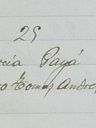 25
cia Payá
o Tomas Andre